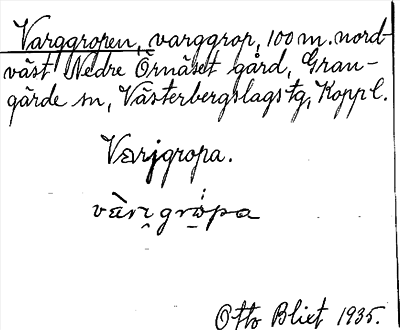 Varggropen, varggrop, 100 m. nord-
väst Nedre Örnäset gård, Gran-
gärde sn, Västerbergslags tg, Kopp l.
Varjgropa.
vàrı̯grö́pa
Otto Blixt 1935.